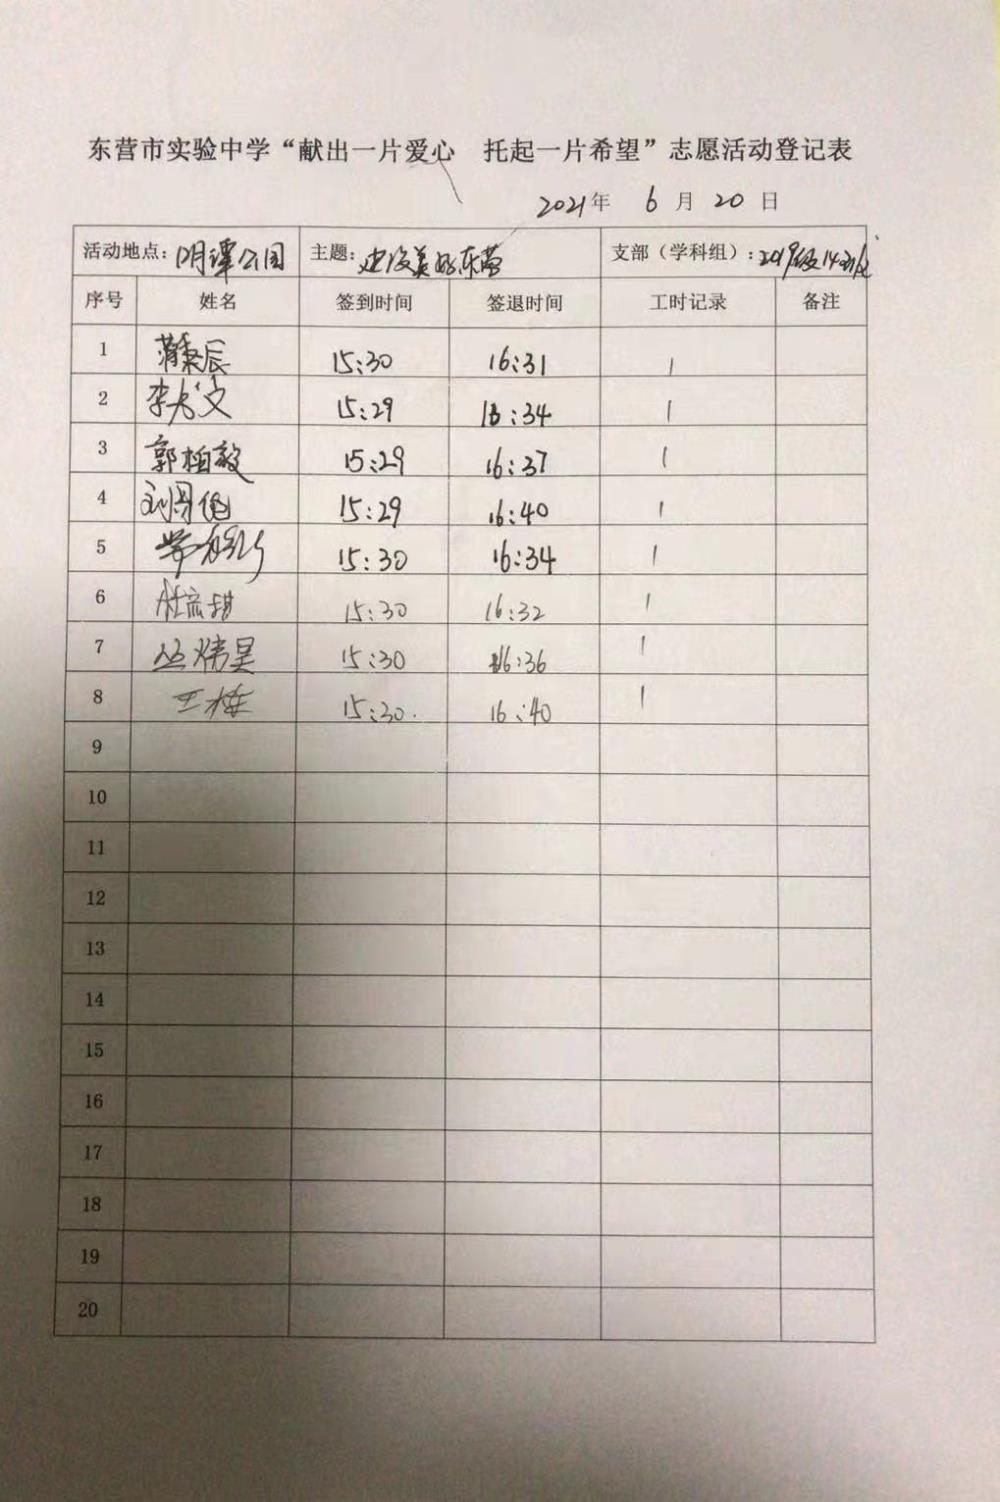 东营市实验中学“献出一片爱心 托起一片希望”志愿活动登记表
2021年 6月20日
活动地点：明潭公园 主题：建设美好东营 支部（学科组）：2019级14班
序号 姓名 签到时间 签退时间 工时记录 备注
1 蒲秉辰 15:30 16:31 1
2 李 文 15:29 16:34 1
3 郭柏毅 15:29 16:37 1
4 刘 15:29 16:40 1
5 15:30 16:34 1
6 杜 甜 15:30 16:32 1
7 丛炜昊 15:30 16:36 1
8 王 15:30. 16:40 1
9
10
11
12
13
14
15
16
17
18
19
20